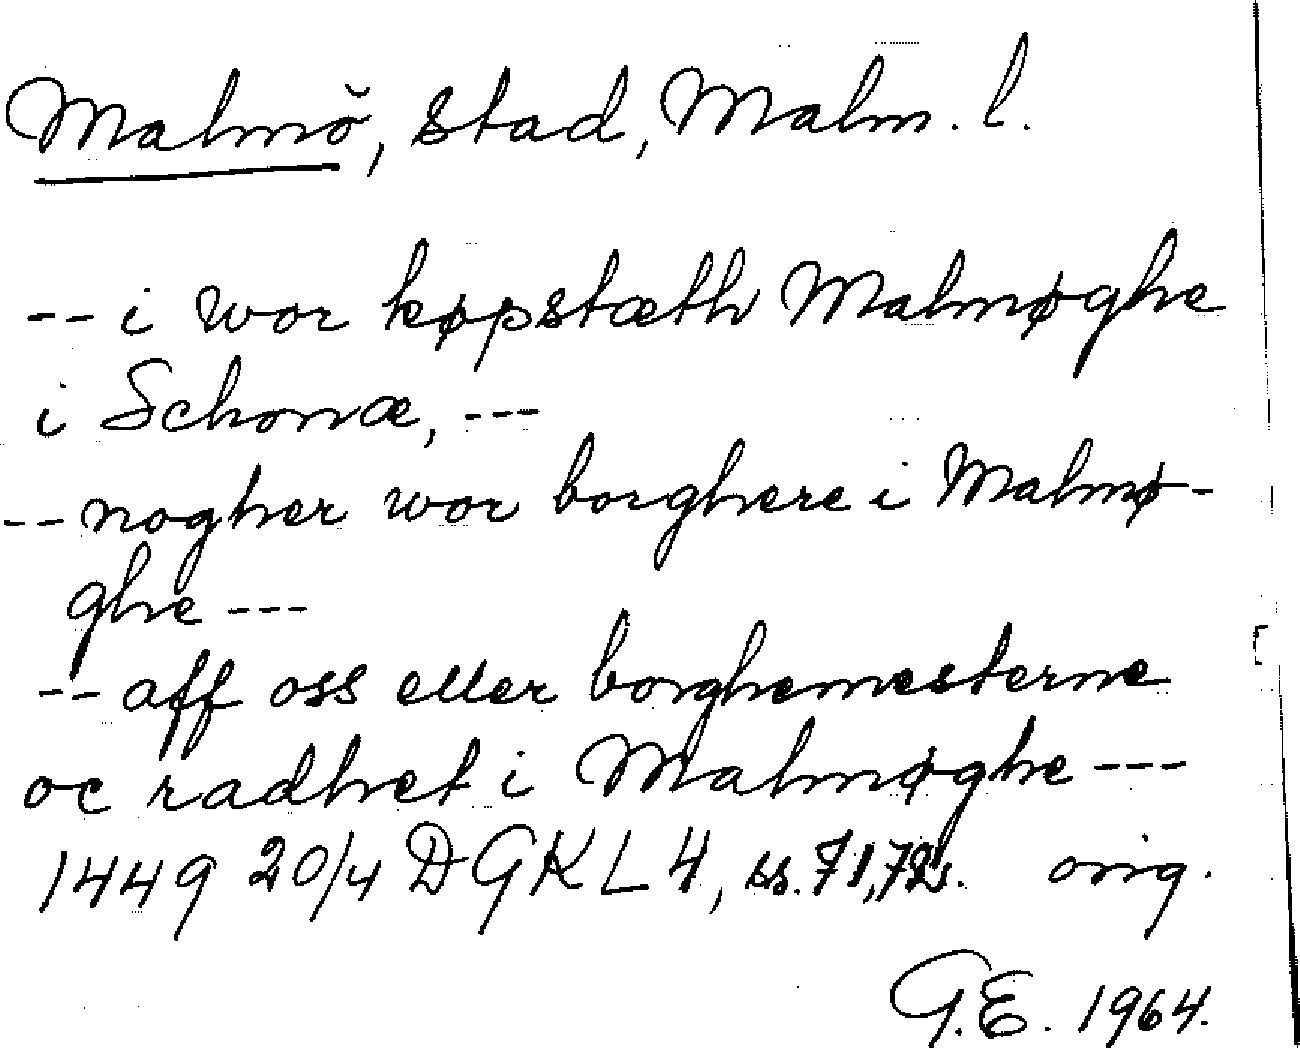 Malmö, stad, Malm. l.
-- i wor køpstæth Malmøghe
i Schonæ, ---
-- nogher wor borghere i Malmø-
ghe ---
-- aff oss eller borghemesterne
oc radhet i Malmøghe ---
1449 20/4 DGKL 4, ss. 71, orig.
G.E. 1964.